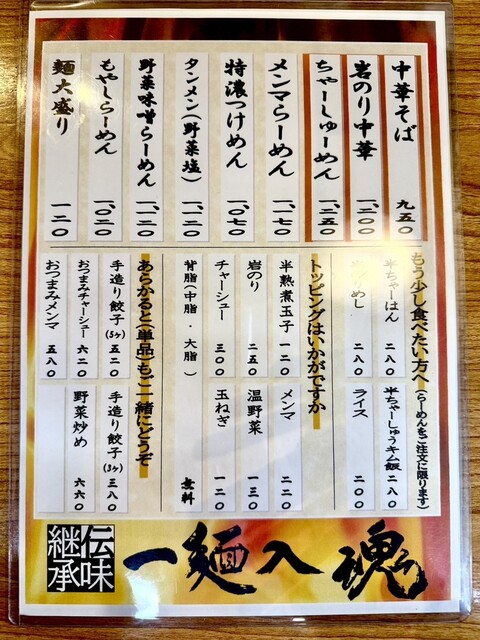 中華そば 九五〇
岩のり中華 一、三〇〇
ちゃーしゅーめん 一、二五〇
メンマらーめん 一、一七〇
特濃つけめん 一、〇七〇
タンメン(野菜塩) 一、一二〇
野菜味噌らーめん 一、一二〇
もやしらーめん 一、〇二〇
麺大盛り 一二〇
もう少し食べたい方へ(らーめんをご注文に限ります)
半ちゃーはん 二八〇
半ちゃーしゅうキム飯 二八〇
めし 二八〇
ライス 二〇〇
トッピングはいかがですか
半熟煮玉子 一二〇
メンマ 二二〇
岩のり 二五〇
温野菜 一三〇
チャーシュー 三〇〇
玉ねぎ 一二〇
背脂(中脂・大脂) 無料
あらかると(単品)もご一緒にどうぞ
手造り餃子(5ヶ) 五二〇
手造り餃子(3ヶ) 三八〇
おつまみチャーシュー 六二〇
野菜炒め 六六〇
おつまみメンマ 五八〇
伝味継承
一麺入魂